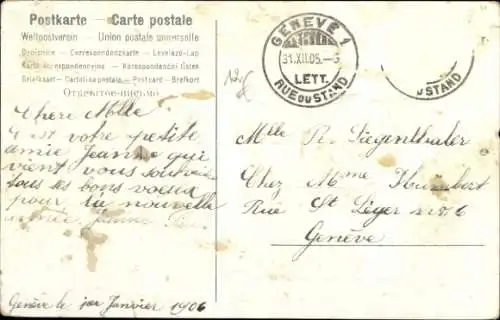 Postkarte — Carte postale
Weltpostverein — Union postale universelle
Dopisnice — Correspondenzkarte — Levelező-Lap
Karta korespondencyjna — Korespondenčni listek
Briefkaart — Cartolina postale — Postcard — Brefkort
Открытое письмо
GENÈVE 1
31.XII.05.—
LETT.
RUE DU STAND
DU STAND
Chère Mlle
C'est votre petite
amie Jeanne qui
vient vous
tous les bons voeux
pour la nouvelle
année. Jeanne
Genève le 1er Janvier 1906
Mlle R. Siegenthaler
Chez Mme Humbert
Rue St Léger No 6
Genève